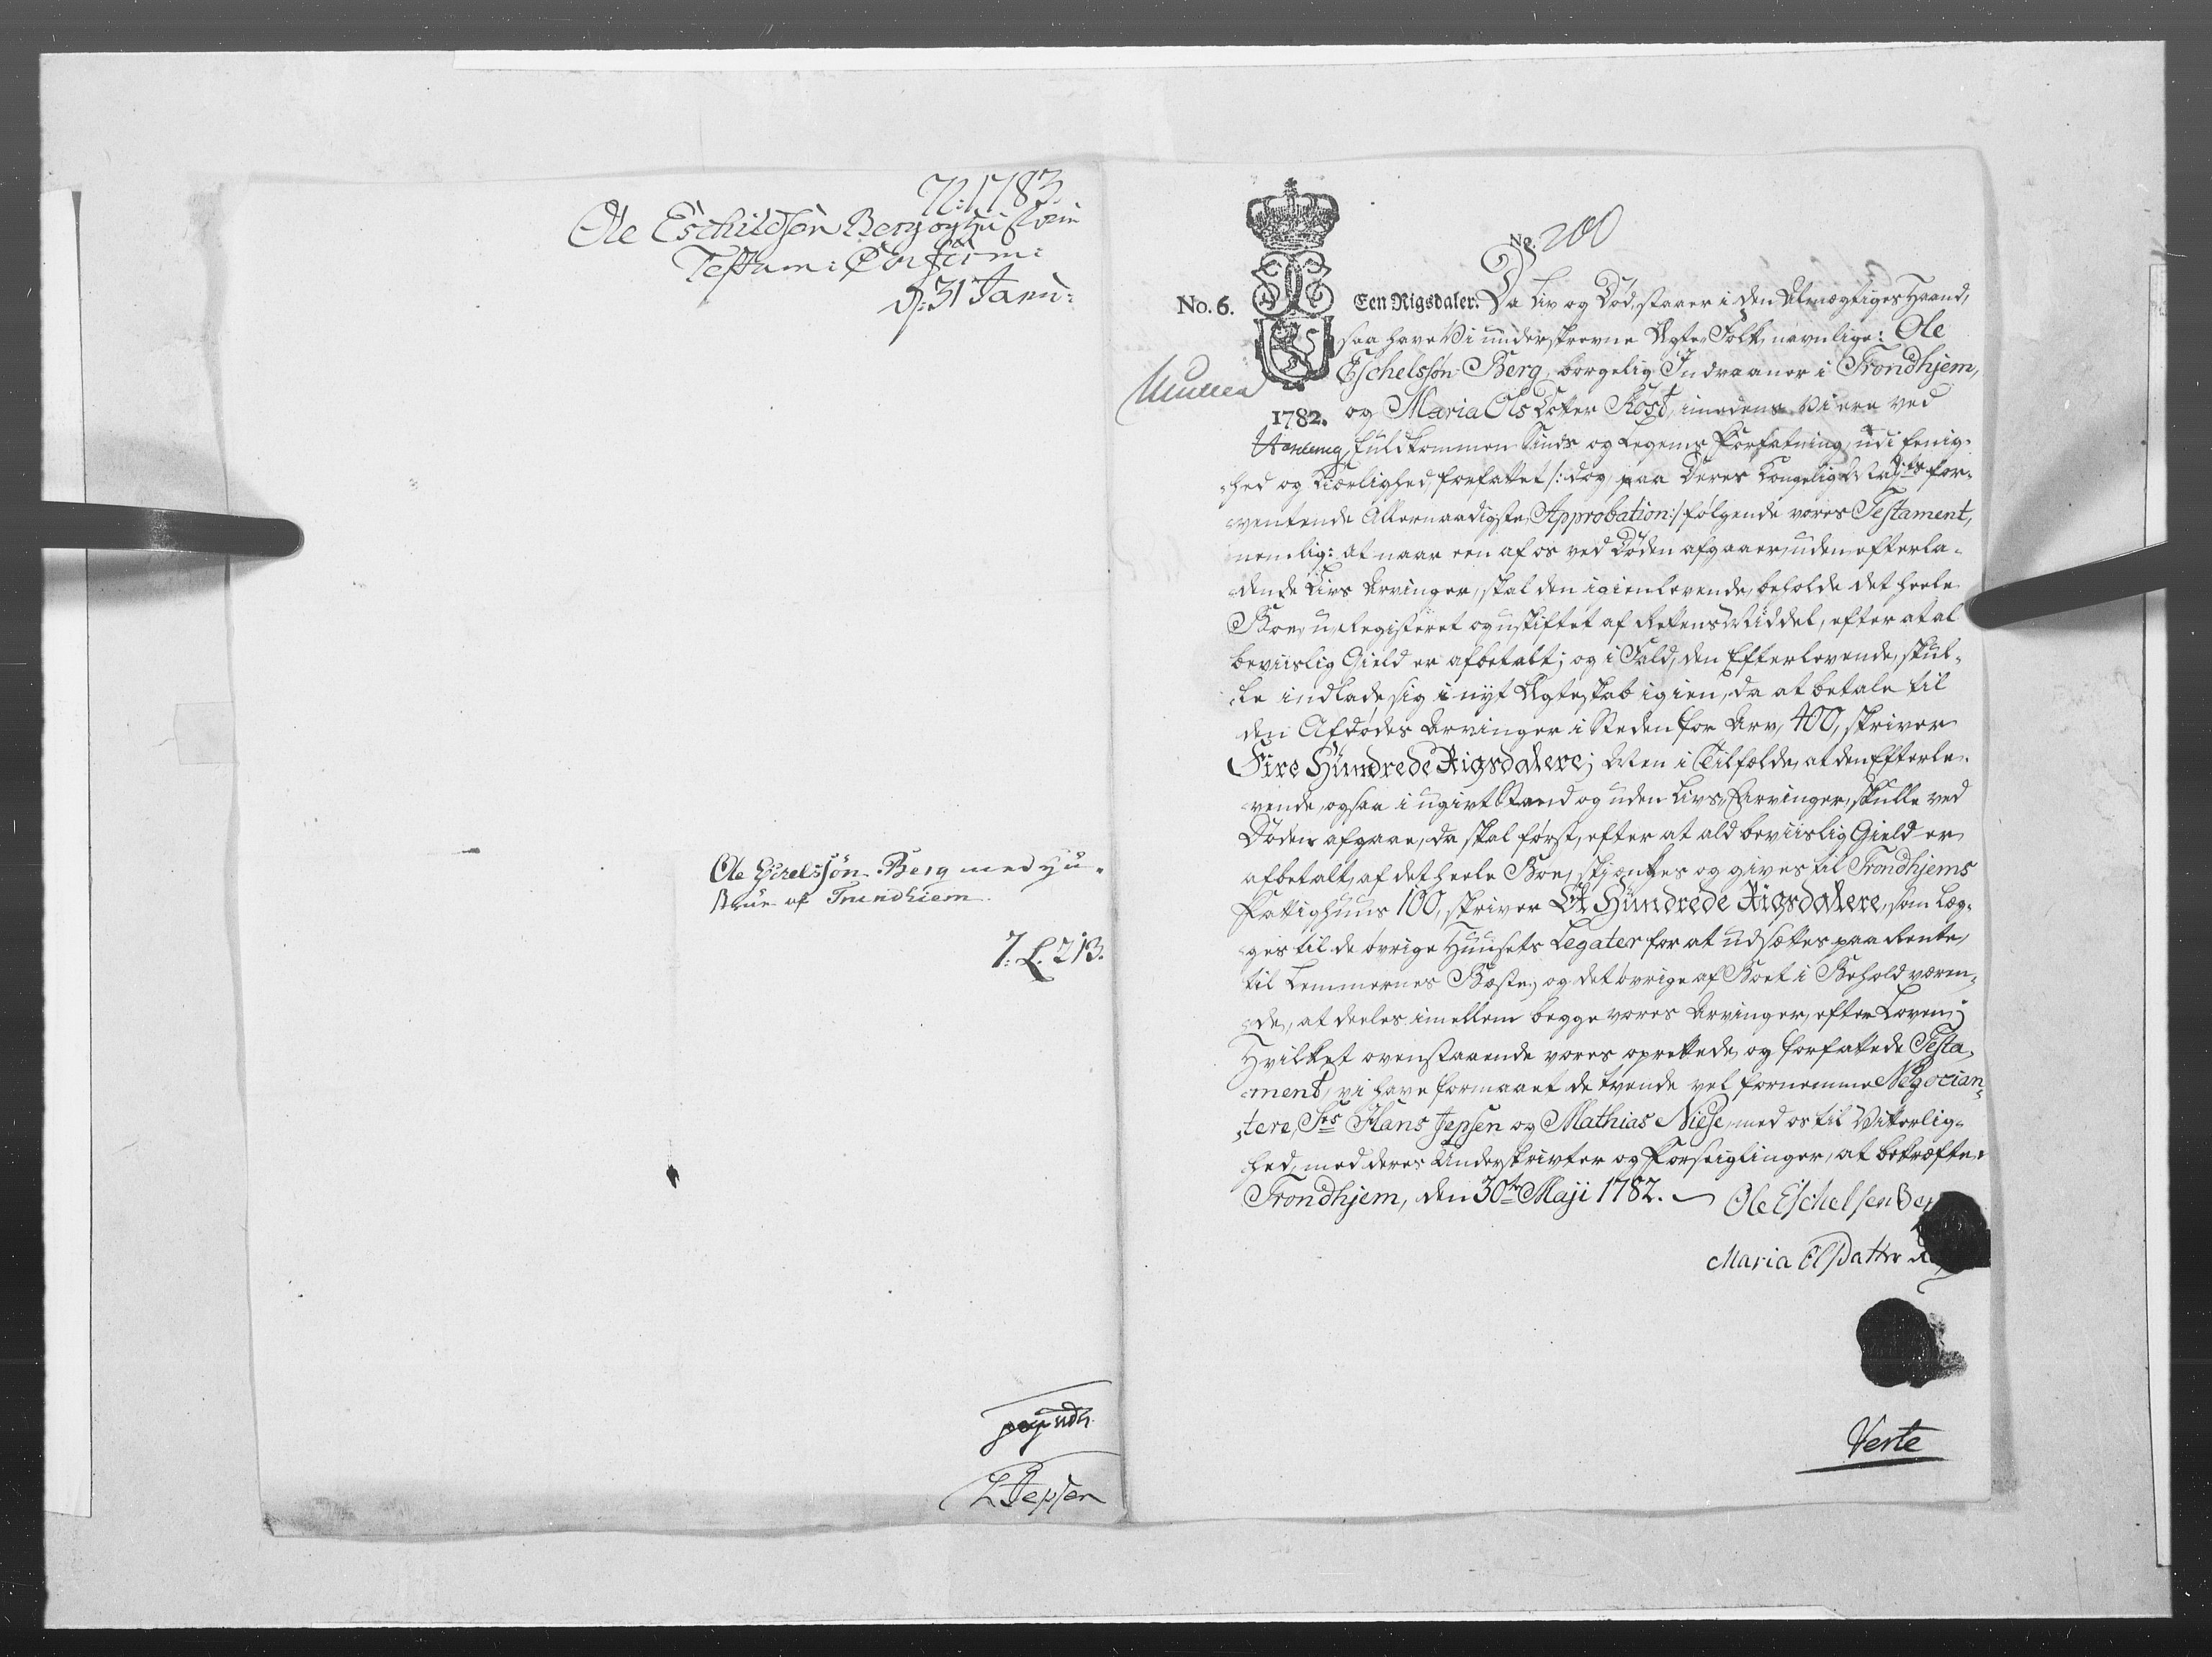 72: 1783.
Ole Eschildsen Berg og Hustrue
Testam: Confirm:
d: 31 Janu:
Ole Eschelssøn Berg med Hu-
strue af Trundhiem.
7: L. 213.
H Jepsen
No. 200
No. 6.
Een Rigsdaler. Da Liv og Død, staaer i den Almægtiges Haand,
saa have Vi underskrevne Ægte-Folk, navnlige: Ole
Eschelssøn Berg, borgelig Indvaaner i Trondhjem,
1782. og Maria Ols Dotter Kost, imedens Vi ere ved
fuldkommen Sinds og Legems Forfatning, udi Eenig-
hed og Kiærlighed, forfattet /: dog, paa Deres Kongelig Majts for-
ventende Allernaadigste Approbation :/ følgende vores Testament,
nemlig: at naar een af os ved Døden afgaaer, uden efterla-
dende Livs Arvinger, skal den igienlevende, beholde det heele
Boe, u-Registeret og uskiftet af Rettens Middel, efter at al
beviislig Gield er afbetalt; og i Fald, den Efterlevende, skul-
le indlade sig i nyt Ægteskab igien, da at betale til
den Afdødes Arvinger i Steden for Arv, 400, skriver
Fire Hundrede Rigsdalere; Men i Tilfælde, at den Efterle-
vende, ogsaa i ugivt Stand og uden Livs-Arvinger, skulle ved
Døden afgaae, da skal først, efter at ald beviislig Gield er
afbetalt, af det heele Boe, skjænkes og gives til Trondhjems
Fattighuus 100, skriver Et Hundrede Rigsdalere, som læg-
ges til de øvrige Huusets Legater for at udsættes paa Rente,
til Lemmernes Bæste; og det øvrige af Boet i Behold væren-
de, at deeles imellem begge vores Arvinger, efter Loven;
Hvilket ovenstaaende vores oprettede og forfattede Testa-
ment, vi have formaaet de tvende vel fornemme Negocian-
tere, Srs Hans Jepsen og Mathias Niese, med os til Vitterlig-
hed, med deres Underskrivter og Forseiglinger, at bekræfte.
Trondhjem, den 30te Maji 1782. Ole Eschelsen Ber
Maria Olsdatter
Verte